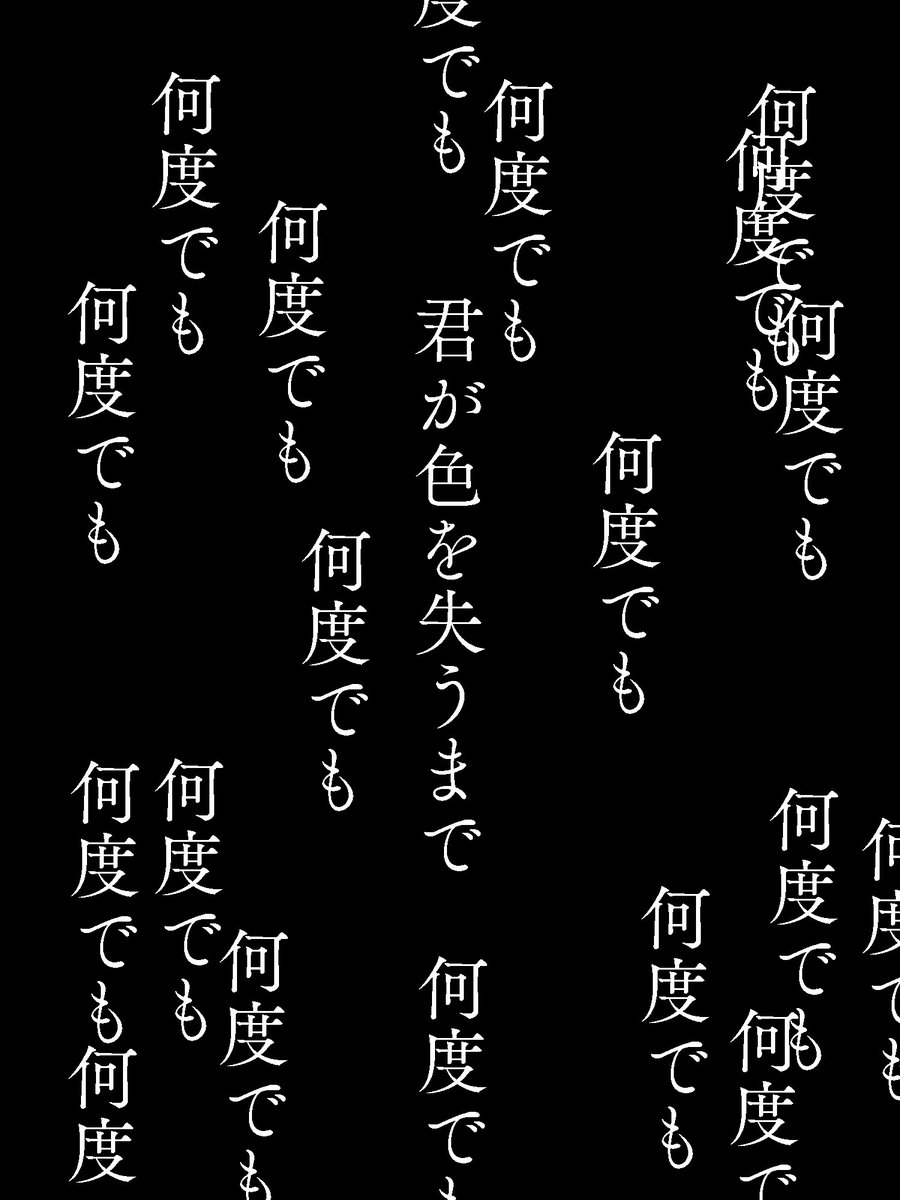 何度でも
何度でも
何度でも
何度でも
何度でも
何度で
何度でも
何度でも
何度でも
度でも
君が色を失うまで
何度でも
何度でも
何度でも
何度でも
何度でも
何度でも
何度でも
何度でも
何度